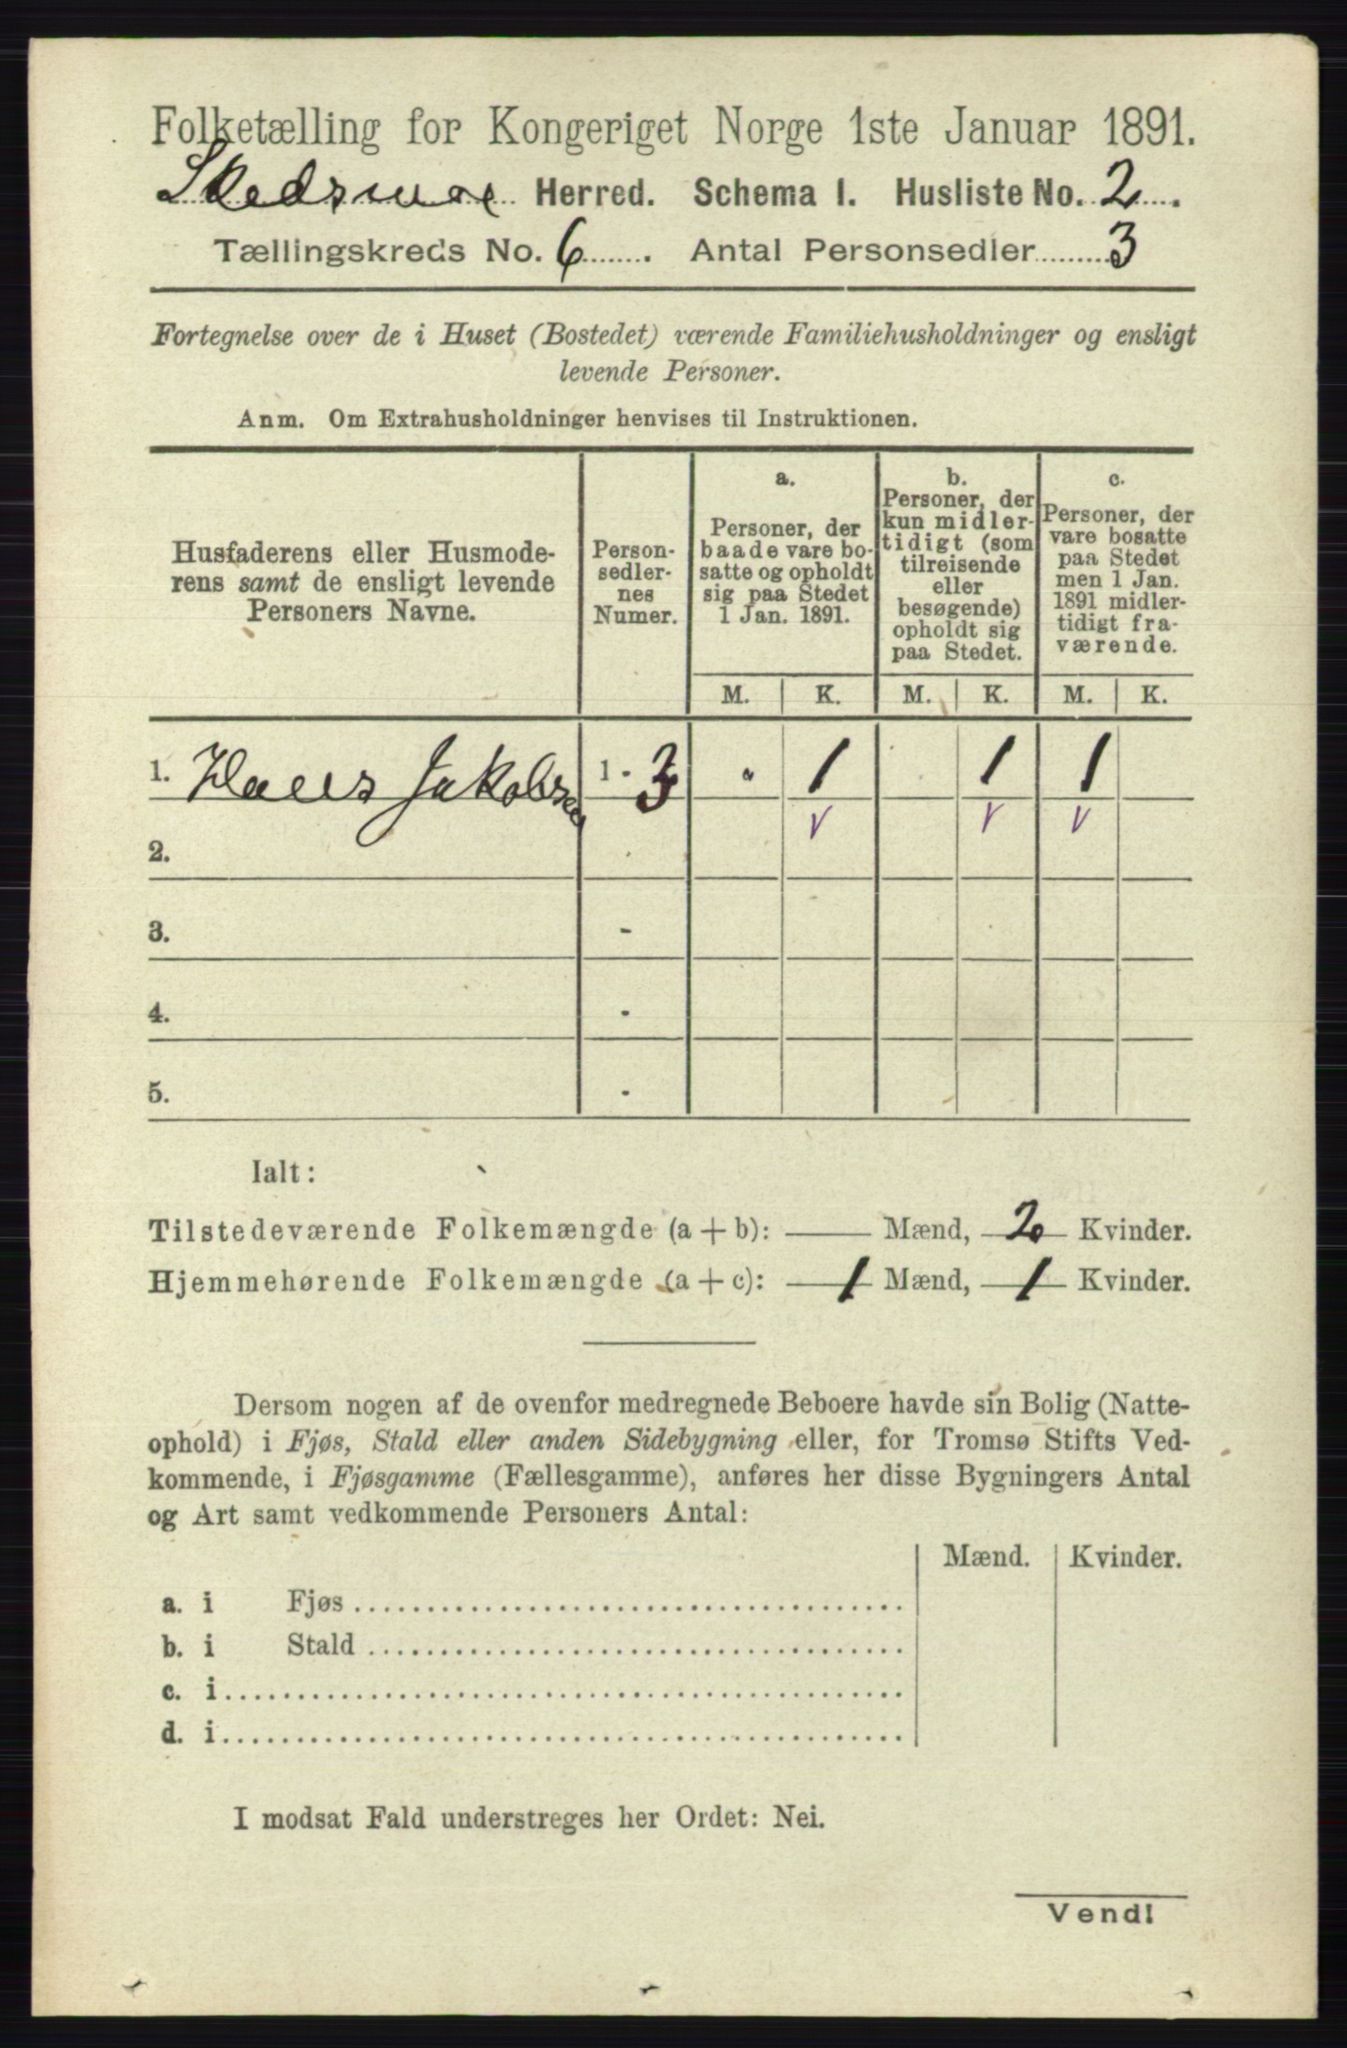 Folketælling for Kongeriget Norge 1ste Januar 1891.
Skedsmoe Herred. Schema I. Husliste No. 2.
Tællingskreds No. 6. Antal Personsedler 3
Fortegnelse over de i Huset (Bostedet) værende Familiehusholdninger og ensligt
levende Personer.
Anm. Om Extrahusholdninger henvises til Instruktionen.
Husfaderens eller Husmode-
rens samt de ensligt levende
Personers Navne.
Person-
sedler-
nes
Numer.
a.
Personer, der
baade vare bo-
satte og opholdt
sig paa Stedet
1 Jan. 1891.
b.
Personer, der
kun midler-
tidigt (som
tilreisende
eller
besøgende)
opholdt sig
paa Stedet.
c.
Personer, der
vare bosatte
paa Stedet
men 1 Jan.
1891 midler-
tidigt fra-
værende.
M. K. M. K. M. K.
1. Hans Jakobsen 1 - 3 1 1 1
v v v
2.
3. -
4. -
5. -
Ialt:
Tilstedeværende Folkemængde (a + b): — Mænd, 2 Kvinder.
Hjemmehørende Folkemængde (a + c): 1 Mænd, 1 Kvinder.
Dersom nogen af de ovenfor medregnede Beboere havde sin Bolig (Natte-
ophold) i Fjøs, Stald eller anden Sidebygning eller, for Tromsø Stifts Ved-
kommende, i Fjøsgamme (Fællesgamme), anføres her disse Bygningers Antal
og Art samt vedkommende Personers Antal:
Mænd. Kvinder.
a. i Fjøs
b. i Stald
c. i
d. i
I modsat Fald understreges her Ordet: Nei.
Vend!